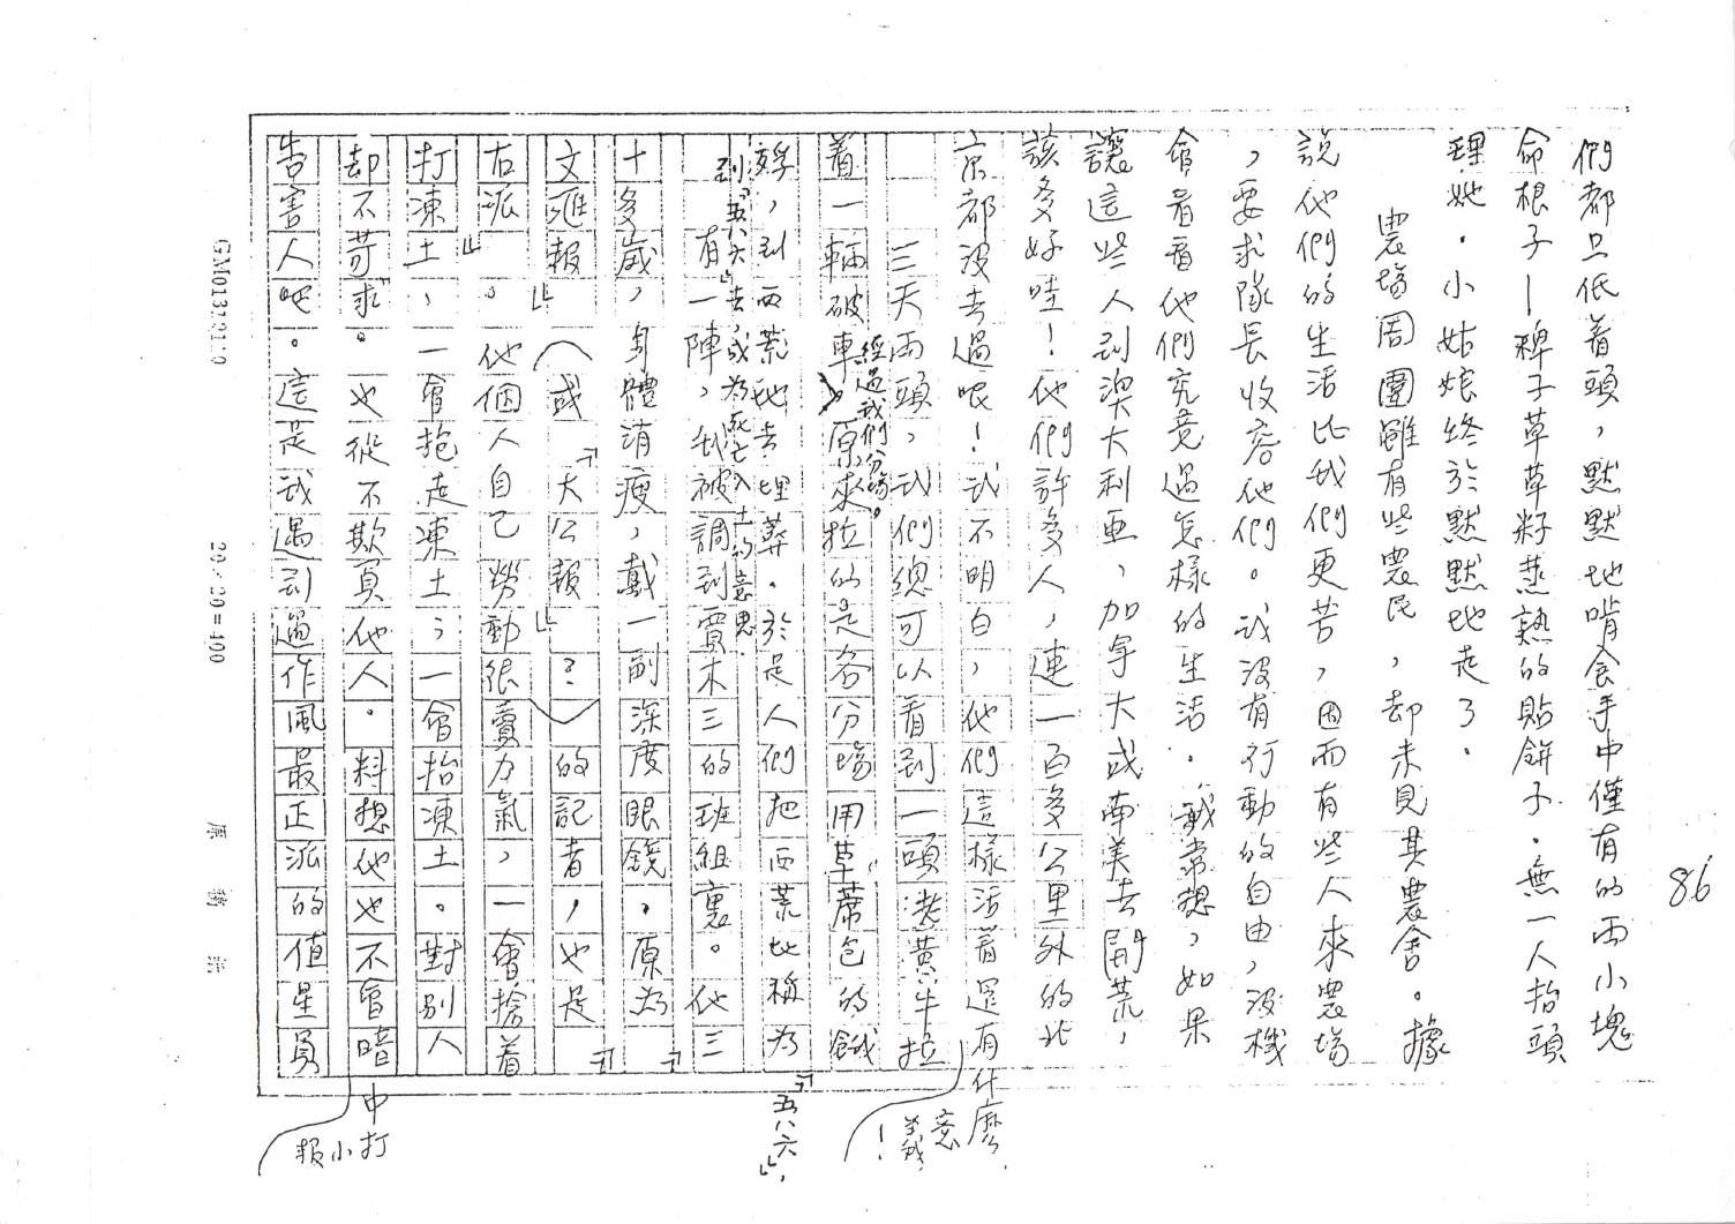 86
們都只低着頭，默默地啃食手中僅有的兩小塊
命根子—稗子草草籽蒸熟的貼餅子．無一人抬頭
理她．小姑娘終於默默地走了．
農場周圍雖有些農民，却未見其農舍。據
說他們的生活比我們更苦，因而有些人來農場
，要求隊長收容他們。我没有行動的自由，没機
會看看他們究竟過怎樣的生活．我常想，如果
讓這些人到澳大利亚，加拿大或南美去開荒，
該多好哇！他們許多人，連一百多公里外的北
京都没去過哏！我不明白，他們這樣活着還有什麼意義！
三天兩頭，我們總可以看到一頭老黄牛拉
着一輛破車經過我們分場。原來拉的是各分場用草蓆包的餓
殍，到西荒地去埋葬．於是人們把西荒地稱為「五八六」，
到「五八六」去，成為死亡入土的意思．
有一陣，我被調到賈木三的班組裏。他三
十多歲，身體消瘦，戴一副深度眼鏡．原為「
文滙報」（或「大公報」？）的記者，也是「
右派」。他個人自己勞動很賣力氣，一會搶着
打凍土，一會抱走凍土，一會抬凍土。對别人
却不苛求。也從不欺負他人．料想他也不會暗中打小報
告害人吧。這是我遇到過作風最正派的值星員
GM0131210
20×20=400
原稿紙